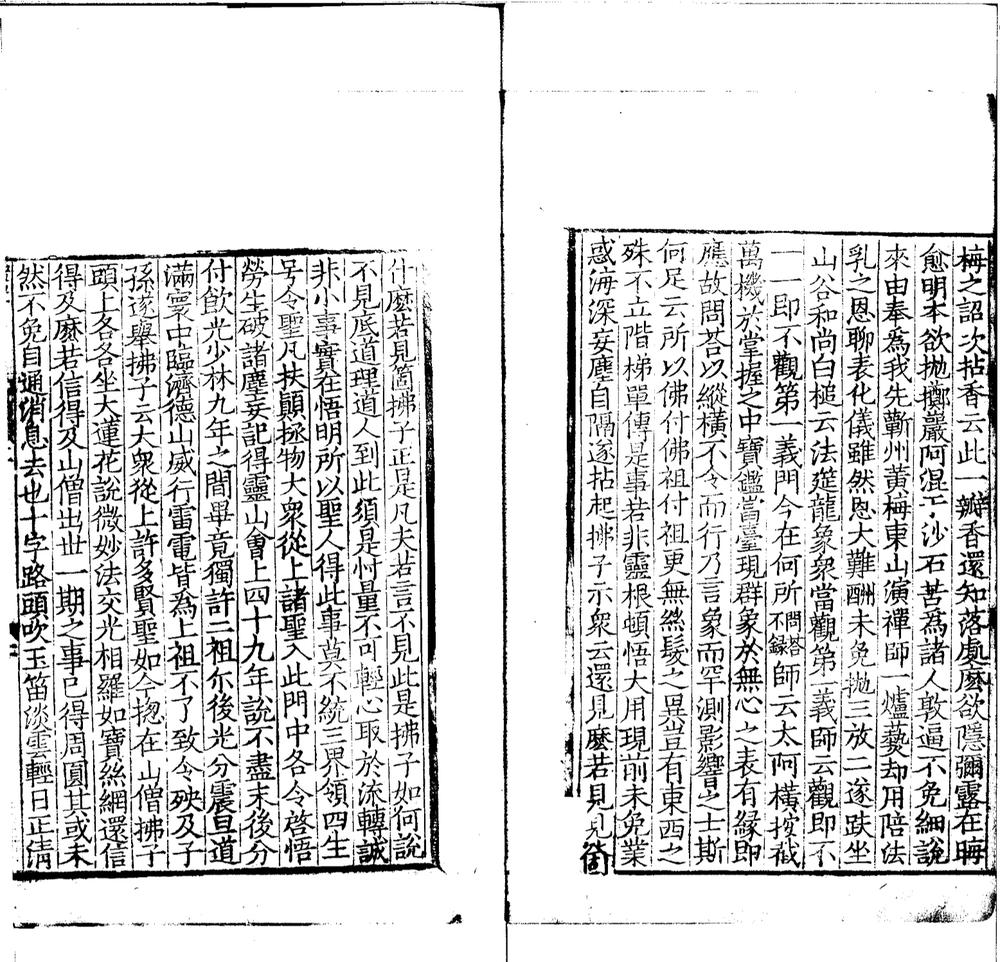 梅之詔次拈香云此一瓣香還知落處麽欲隱彌露在晦
愈明本欲拋擲巖阿混于沙石苦爲諸人敦逼不免細說
來由奉爲我先蘄州黃梅東山演禪師一爐爇却用陪法
乳之恩聊表化儀雖然恩大難酬未免拋三放二遂趺坐
山谷和尚白槌云法筵龍象衆當觀第一義師云觀即不
一一即不觀第一義門今在何所問答不錄師云太阿橫按截
萬機於掌握之中寶鑑當臺現群象於無心之表有緣即
應故問荅以縱橫不令而行乃言象而罕測影響之士斯
何足云所以佛付佛祖付祖更無絲髮之異豈有東西之
殊不立階梯單傳是事若非靈根頓悟大用現前未免業
惑海深妄塵自隔遂拈起拂子示衆云還見麽若見見箇
什麽若見箇拂子正是凡夫若言不見此是拂子如何說
不見底道理道人到此須是忖量不可輕心取於流轉誠
非小事實在悟明所以聖人得此事莫不統三界領四生
号令聖凡扶顛拯物大衆從上諸聖入此門中各令啓悟
勞生破諸塵妄記得靈山會上四十九年說不盡末後分
付飲光少林九年之間畢竟獨許二祖尒後光分震旦道
滿寰中臨濟德山威行雷電皆爲上祖不了致令殃及子
孫遂舉拂子云大衆從上許多賢聖如今揔在山僧拂子
頭上各各坐大蓮花說微妙法交光相羅如寶絲網還信
得及麽若信得及山僧出世一期之事已得周圓其或未
然不免自通消息去也十字路頭吹玉笛淡雲輕日正淸